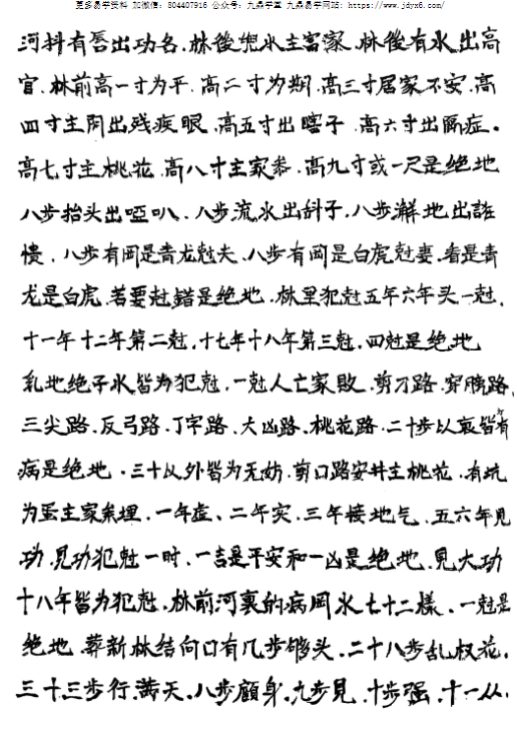 更多易学资料 加微信：804407916 公众号：九鼎学堂 九鼎易学网站：https://www.jdyx6.com/
河抖有唇出功名.林後兜水主富家.林後有水出高
官.林前高一寸为平.高二寸为期.高三寸居家不安.高
四寸主阴出残疾眼.高五寸出瞎子.高六寸出症。
高七寸主桃花.高八寸主家参.高九寸或一尺是绝地
八步抬头出哑叭.八步流水出斜子.八步地出
愦.八步有岡是青龙尅夫.八步有岡是白虎尅妻.看是青
龙是白虎.若要尅錯是绝地.林里犯尅五年六年头一尅.
十一年十二年第二尅.十七年十八年第三尅.四尅是绝地
乱地绝子水皆为犯尅.一尅人亡家败.剪刀路.穿路.
三尖路.反弓路.丁字路.大凶路.桃花路.二十步以裏皆有
病是绝地.三十以外皆为无妨.剪口路安井主桃花.有坑
为主家埋.一年虚、二年实.三年接地气.五六年见
功.見功犯尅一时.一吉是平安和一凶是绝地.見大功
十八年皆为犯尅.林前河裏的病岡水七十二樣.一尅是
绝地.葬新林结向口有几步够头.二十八步乱权花.
三十三步行.满天.八步顧身.九步見.十步强.十一从.